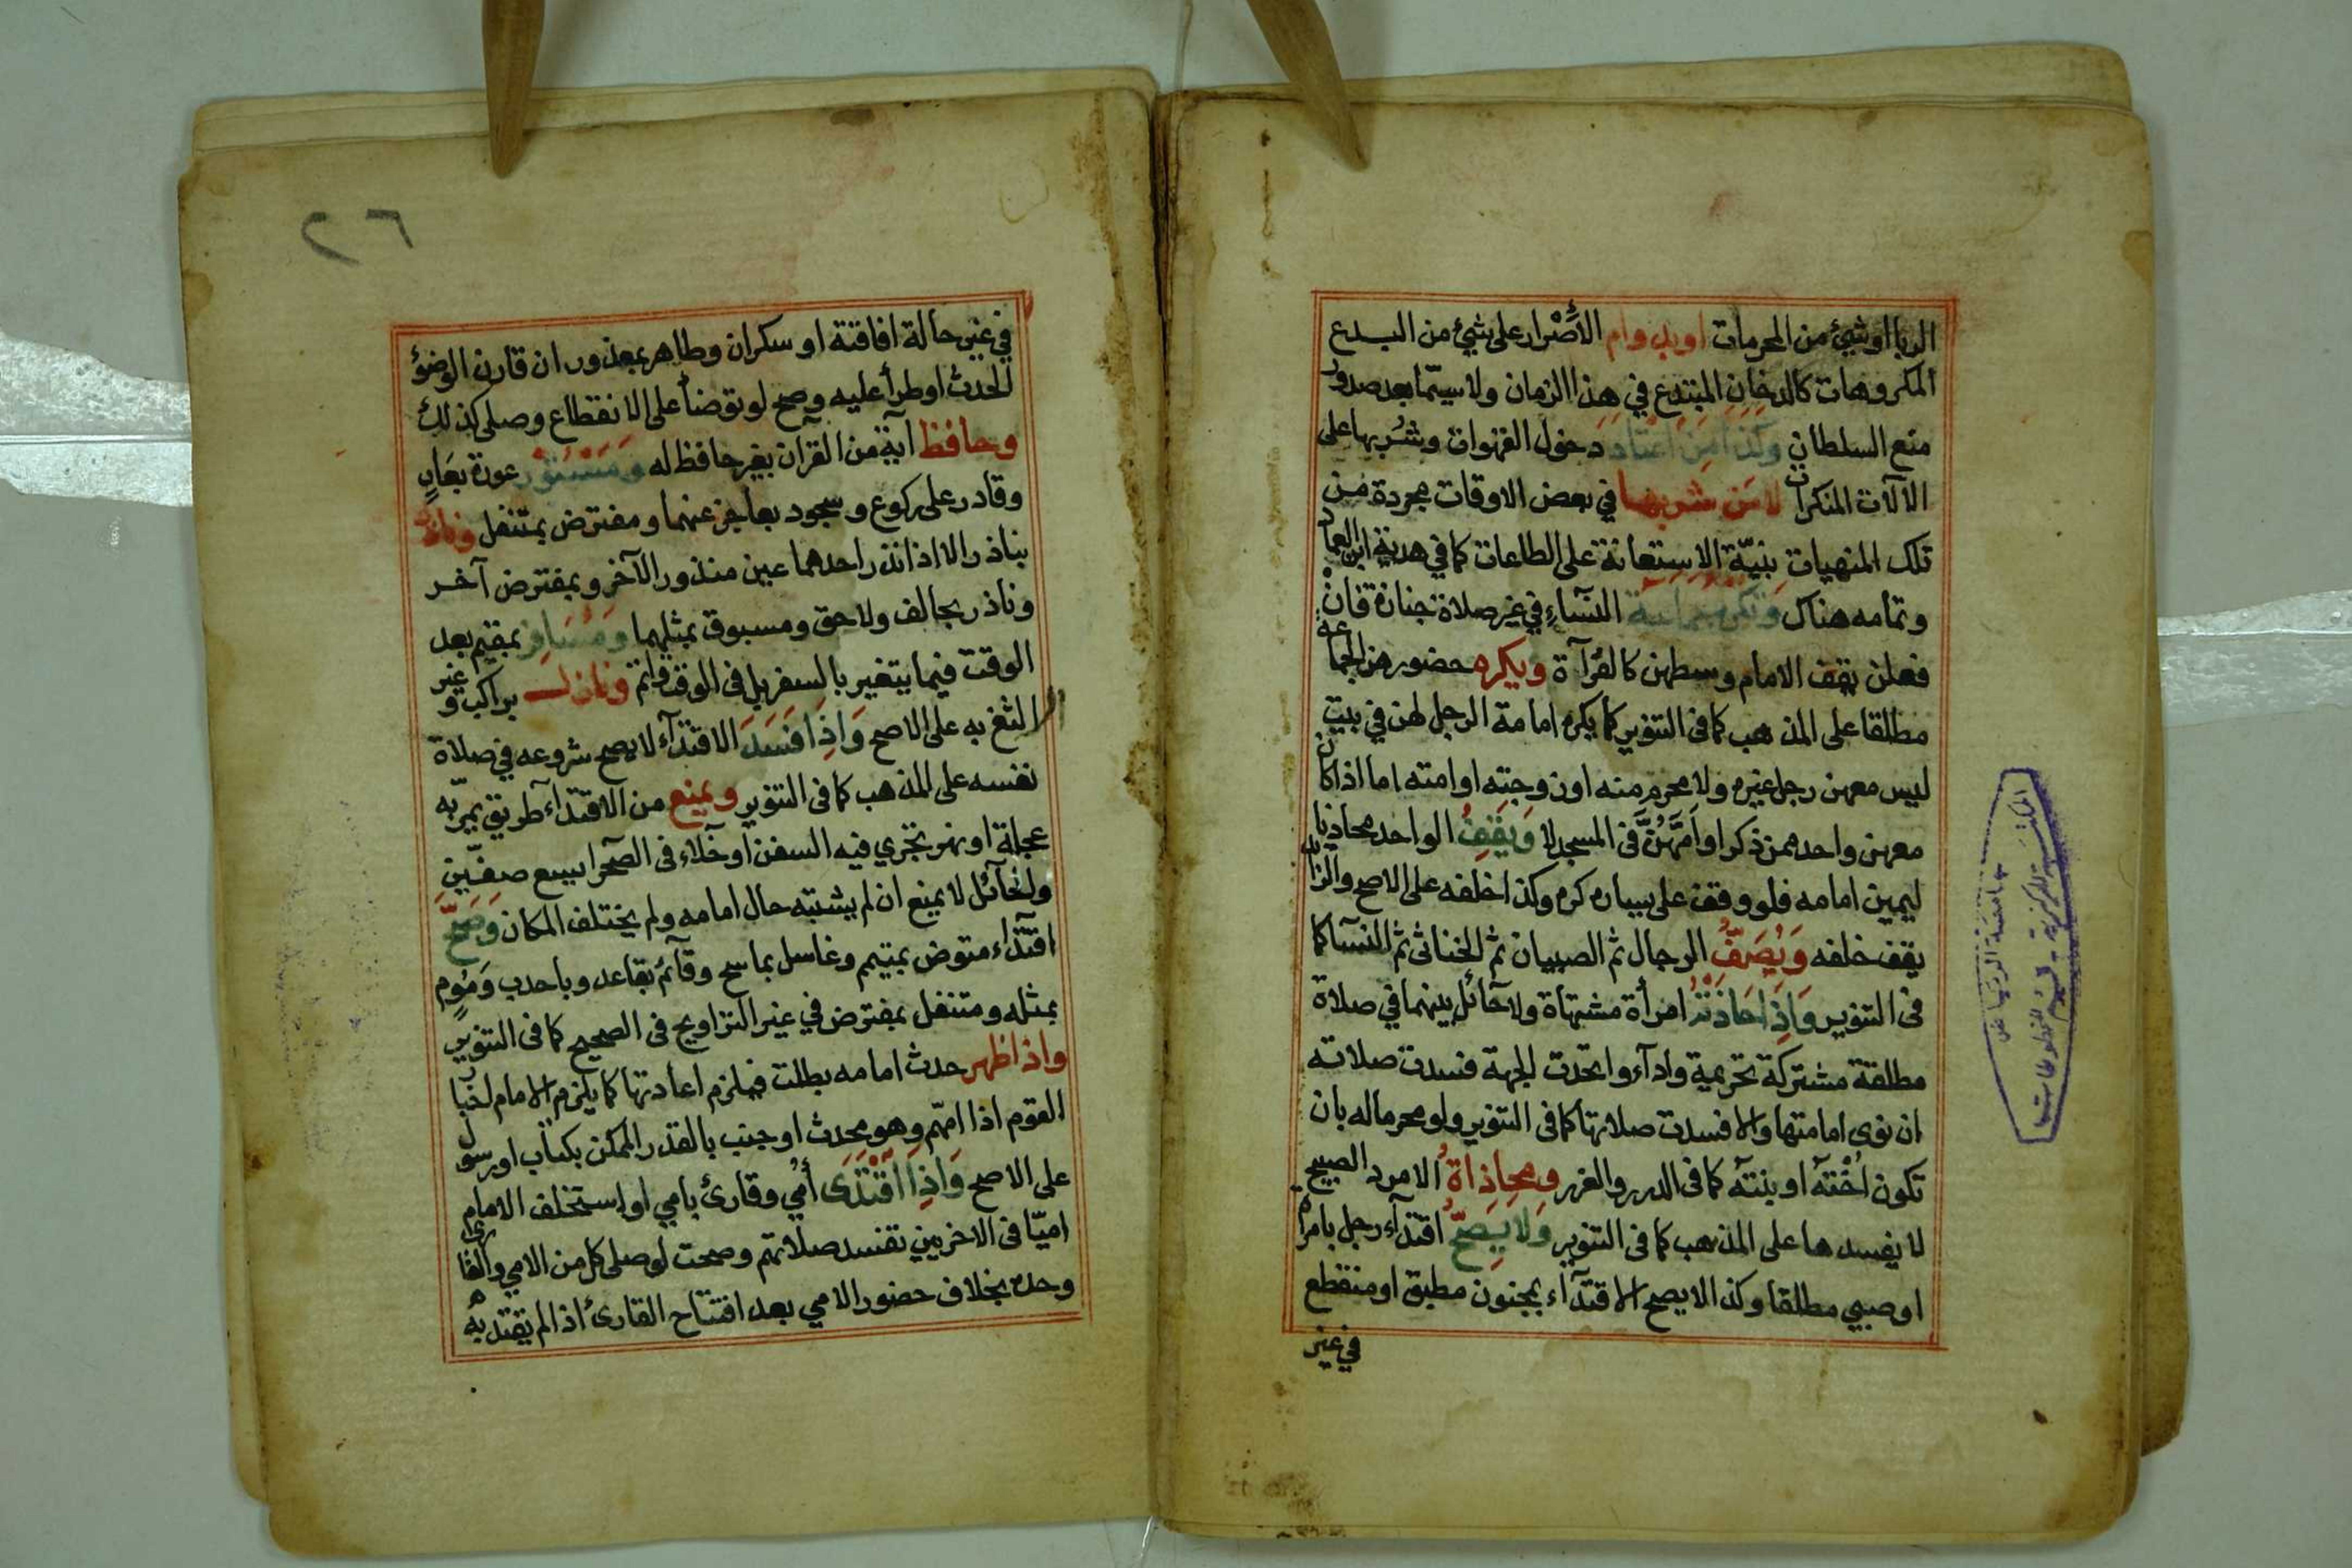 الربا او شيئ من المحرمات او يدوام الأصْرار على شيئ من البدع
المكروهات كالدخان المبتدع في هذا الزمان ولا سيّما بعد صدور
منع السلطان وكذا من اعتاد دخول القهوات وشربها على
الآلات المنكرات لا من شربها في بعض الاوقات مجردة من
تلك المنهيات بنيّة الاستعانة على الطاعات كما في هدية ابن العماد
وتمامه هناك وتكره جماعة النسآء في غير صلاة جنازة فانْ
فعلن يقف الامام وسطهن كالعُراة ويكره حضورهن الجماعة
مطلقا على المذهب كما فى التنوير كما يكره امامة الرجل لهن في بيت
ليس معهن رجل غيره ولا محرم منه او زوجته او امته اما اذا كان
معهن واحد ممن ذكر او اَمَّهُنَّ فى المسجد لا وَيقِفُ الواحد محاذيا
ليمين امامه فلو وقف على يساره كره وكذا خلفه على الاصح والزائد
يقف خلفه وَيُصَفُّ الرجال ثم الصبيان ثم الخناثى ثم النسآ كما
فى التنوير وَاِذَا حَاذَتْهُ امرأة مشتهاة ولا حآئل بينهما في صلاة
مطلقة مشتركة تحريمية وادآء واتحدت الجهة فسدت صلاته
ان نوى امامتها والا فسدت صلاتها كما فى التنوير ولو محرما له بان
تكون اُخْتَهُ او بنته كما فى الدرر والغرر ومحاذاةُ الامرد الصبيح
لا يفسدها على المذهب كما فى التنوير وَلَا يَصِحُّ اقتدآء رجل بامرأة
او صبي مطلقا وكذا لا يصح الاقتدآء بمجنون مطبق او منقطع
في غير
٢٦
في غير حالة افاقته او سكران وطاهر بمعذور ان قارن الوضوُ
الحدث او طرأ عليه وصح لو توضأ على الانقطاع وصلى كذلك
وحافظ آية من القرآن بغير حافظ له وَمَسْتُوْرِ عورة بعَارٍ
وقادر على ركوع وسجود بعاجز عنهما ومفترض بمتنفل وناذر
بناذر الا اذا نذر احدهما عين منذور الآخر وبمفترض آخر
وناذر بحالف ولاحق ومسبوق بمثلهما وَمُسَافِرٍ بمقيم بعد
الوقت فيما يتغير بالسفر بل فى الوقت واتم ونازل براكب وغير
الثغ به على الاصح وَاِذَا فَسَدَ الاقتدآء لا يصح شروعه في صلاة
نفسه على المذهب كما فى التنوير ويمنع من الاقتدآء طريق يمرّ به
عجلة او نهر تجري فيه السفن او خلآء فى الصحرا يسع صفّين
والحآئل لا يمنع ان لم يشتبه حال امامه ولم يختلف المكان وَصَحَّ
اقتدآء متوض بمتيمم وغاسل بماسح وقآئم بقاعد وباحدب وَمُومٍ
بمثله ومتنفل بمفترض في غير التراويح فى الصحيح كما فى التنوير
واذا ظهر حدث امامه بطلت فيلزم اعادتها كما يلزم الامام اخبار
القوم اذا امّهم وهو محدث او جنب بالقدر الممكن بكتاب او رسول
على الاصح وَاِذَا اقْتَدَى أمي وقارئ بامي او استخلف الامام
اميّا فى الاخريين تفسد صلاتهم وصحت لو صلى كل من الامي والقارئ
وحده بخلاف حضور الامي بعد افتتاح القارئ اذا لم يقتد به
جامعة الرياض
المكتبة المركزية - قسم المخطوطات